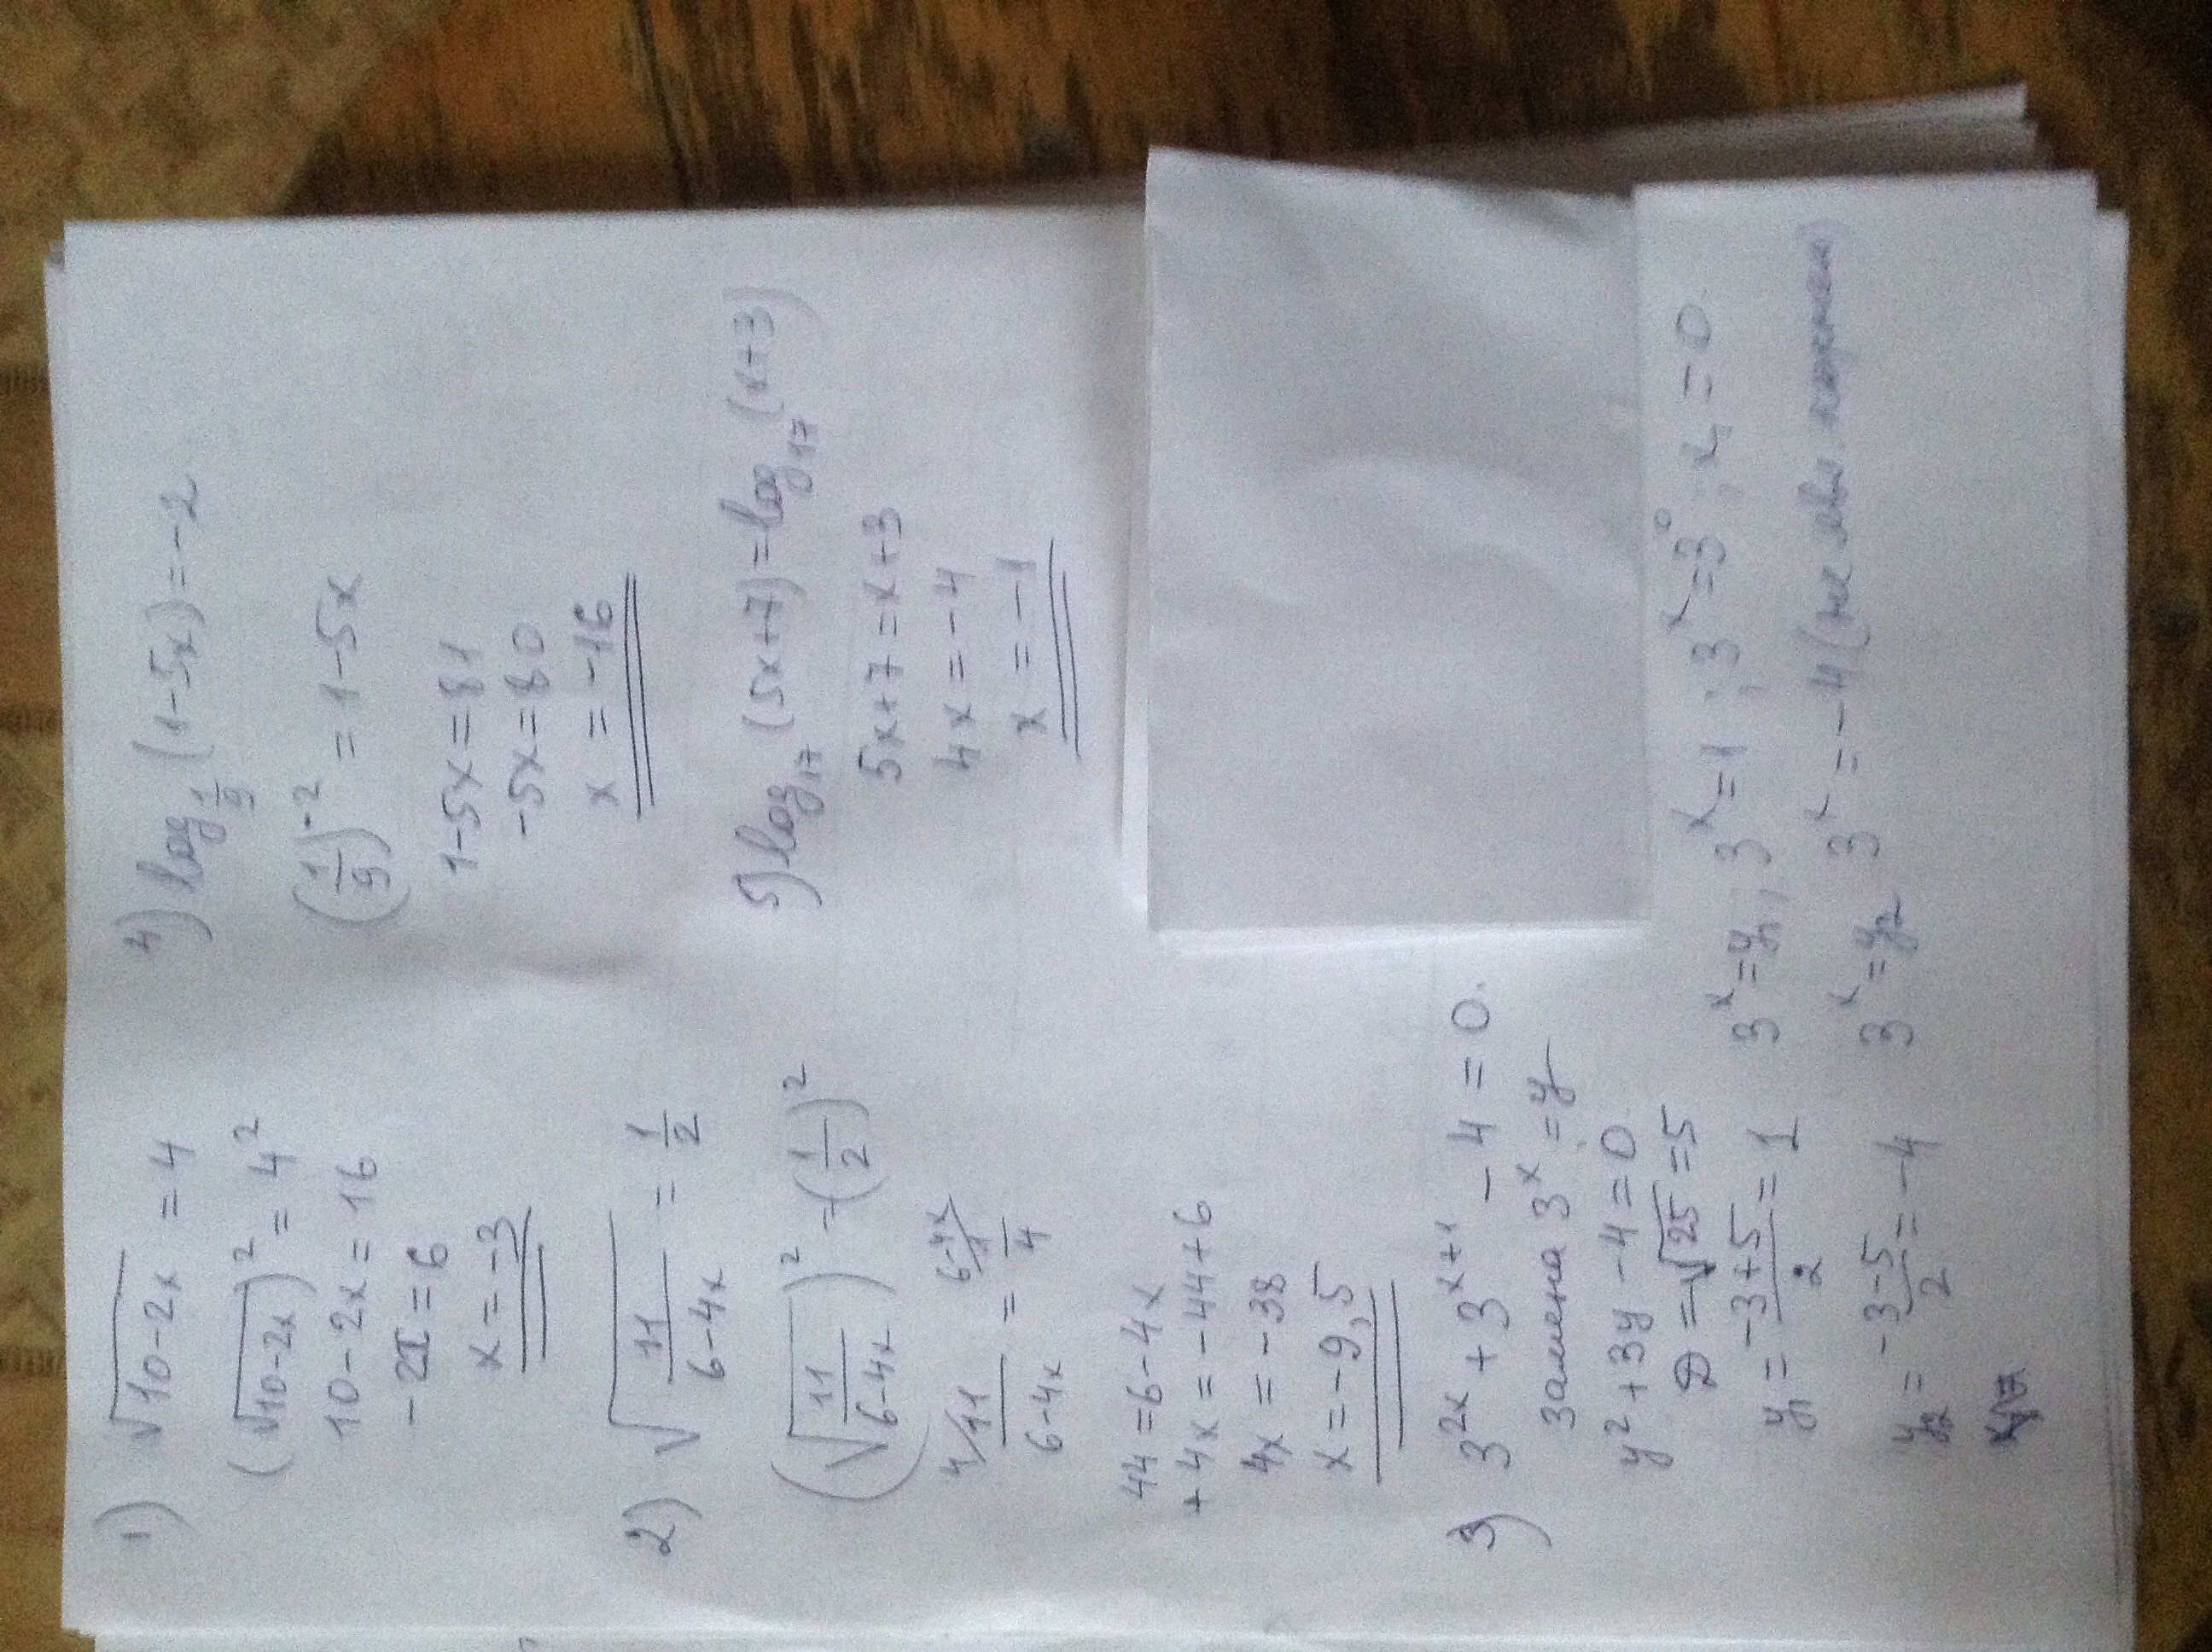 1) √10-2x = 4
(√10-2x)² = 4²
10-2x = 16
-2x = 6
x = -3
2) √11/6-4x = 1/2
(√11/6-4x)² = (1/2)²
4/ 11/6-4x = 1/4 6-4x/
44 = 6-4x
+4x = -44+6
4x = -38
x = -9,5
3) 3²ˣ + 3ˣ⁺¹ - 4 = 0
замена 3ˣ = y
y² + 3y - 4 = 0
D = √25 = 5
y₁ = -3+5/2 = 1
3ˣ = y₁, 3ˣ = 1; 3ˣ = 3⁰, x₁ = 0
y₂ = -3-5/2 = -4
3ˣ = y₂ 3ˣ = -4 (не явл.
4) log₁/₉ (1-5x) = -2
(1/9)⁻² = 1-5x
1-5x = 81
-5x = 80
x = -16
5) log₁₇ (5x+7) = log₁₇ (x+3)
5x+7 = x+3
4x = -4
x = -1